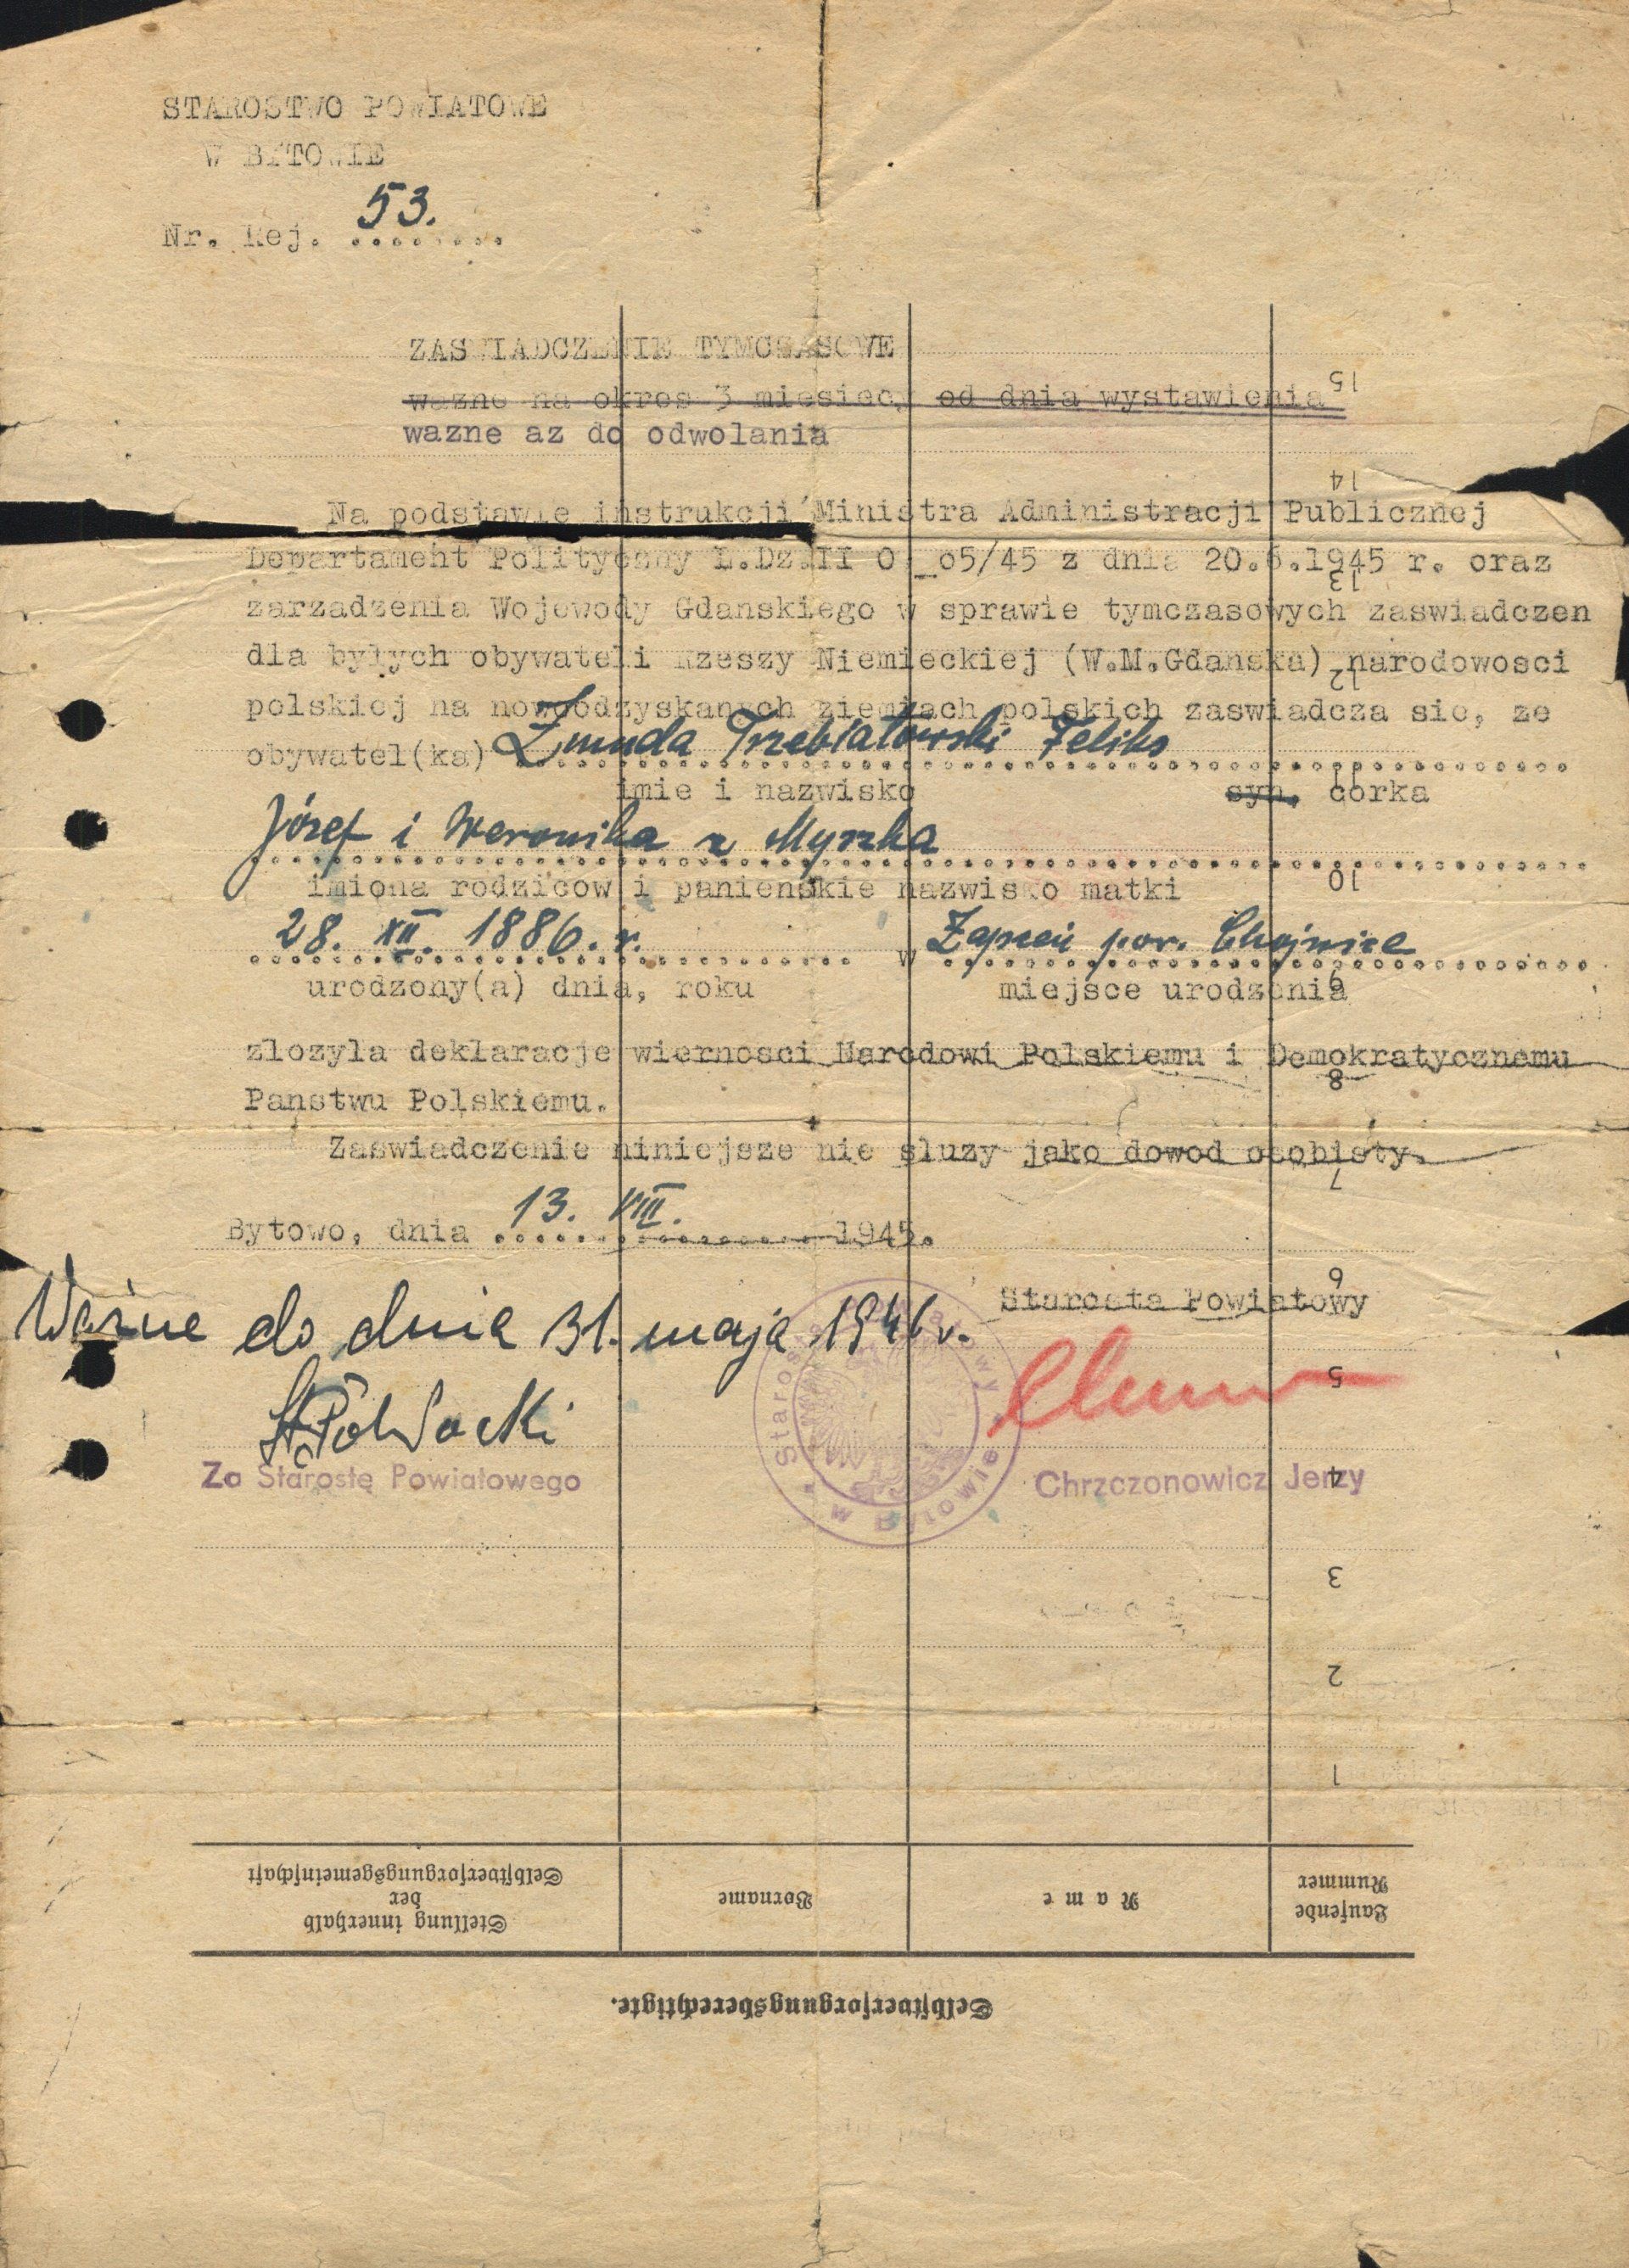 STAROSTWO POWIATOWE
W BYTOWIE
Nr. Rej. 53.
ZASWIADCZENIE TYMCZASOWE
wazne na okres 3 miesiecy od dnia wystawienia
wazne az do odwolania
Na podstawie instrukcji Ministra Administracji Publicznej
Departament Polityczny L.Dz.II O_o5/45 z dnia 20.6.1945 r. oraz
zarzadzenia Wojewody Gdanskiego w sprawie tymczasowych zaswiadczen
dla byłych obywateli Rzeszy Niemieckiej (W.M.Gdanska) narodowosci
polskiej na nowoodzyskanych ziemiach polskich zaswiadcza sie, ze
obywatel(ka) Żmuda Trzebiatowski Feliks
imie i nazwisko syn, corka
Józef i Weronika z Myszka
imiona rodzicow i panienskie nazwisko matki
28. XII. 1886. r. w Zapceń pow. Chojnice
urodzony(a) dnia, roku miejsce urodzenia
zlozyla deklaracje wiernosci Narodowi Polskiemu i Demokratycznemu
Panstwu Polskiemu.
Zaswiadczenie niniejsze nie sluzy jako dowod osobisty.
Bytowo, dnia 13. VIII. 1945.
Starosta Powiatowy
Ważne do dnia 31. maja 1946 r.
Za Starostę Powiatowego
Starosta Powiatowy w Bytowie
Chrzczonowicz Jerzy
15
14
13
12
11
10
9
8
7
6
5
4
3
2
1
Selbstversorgungsberechtigte.
Laufende Nummer
Name
Vorname
Stellung innerhalb
der
Selbstversorgungsgemeinschaft